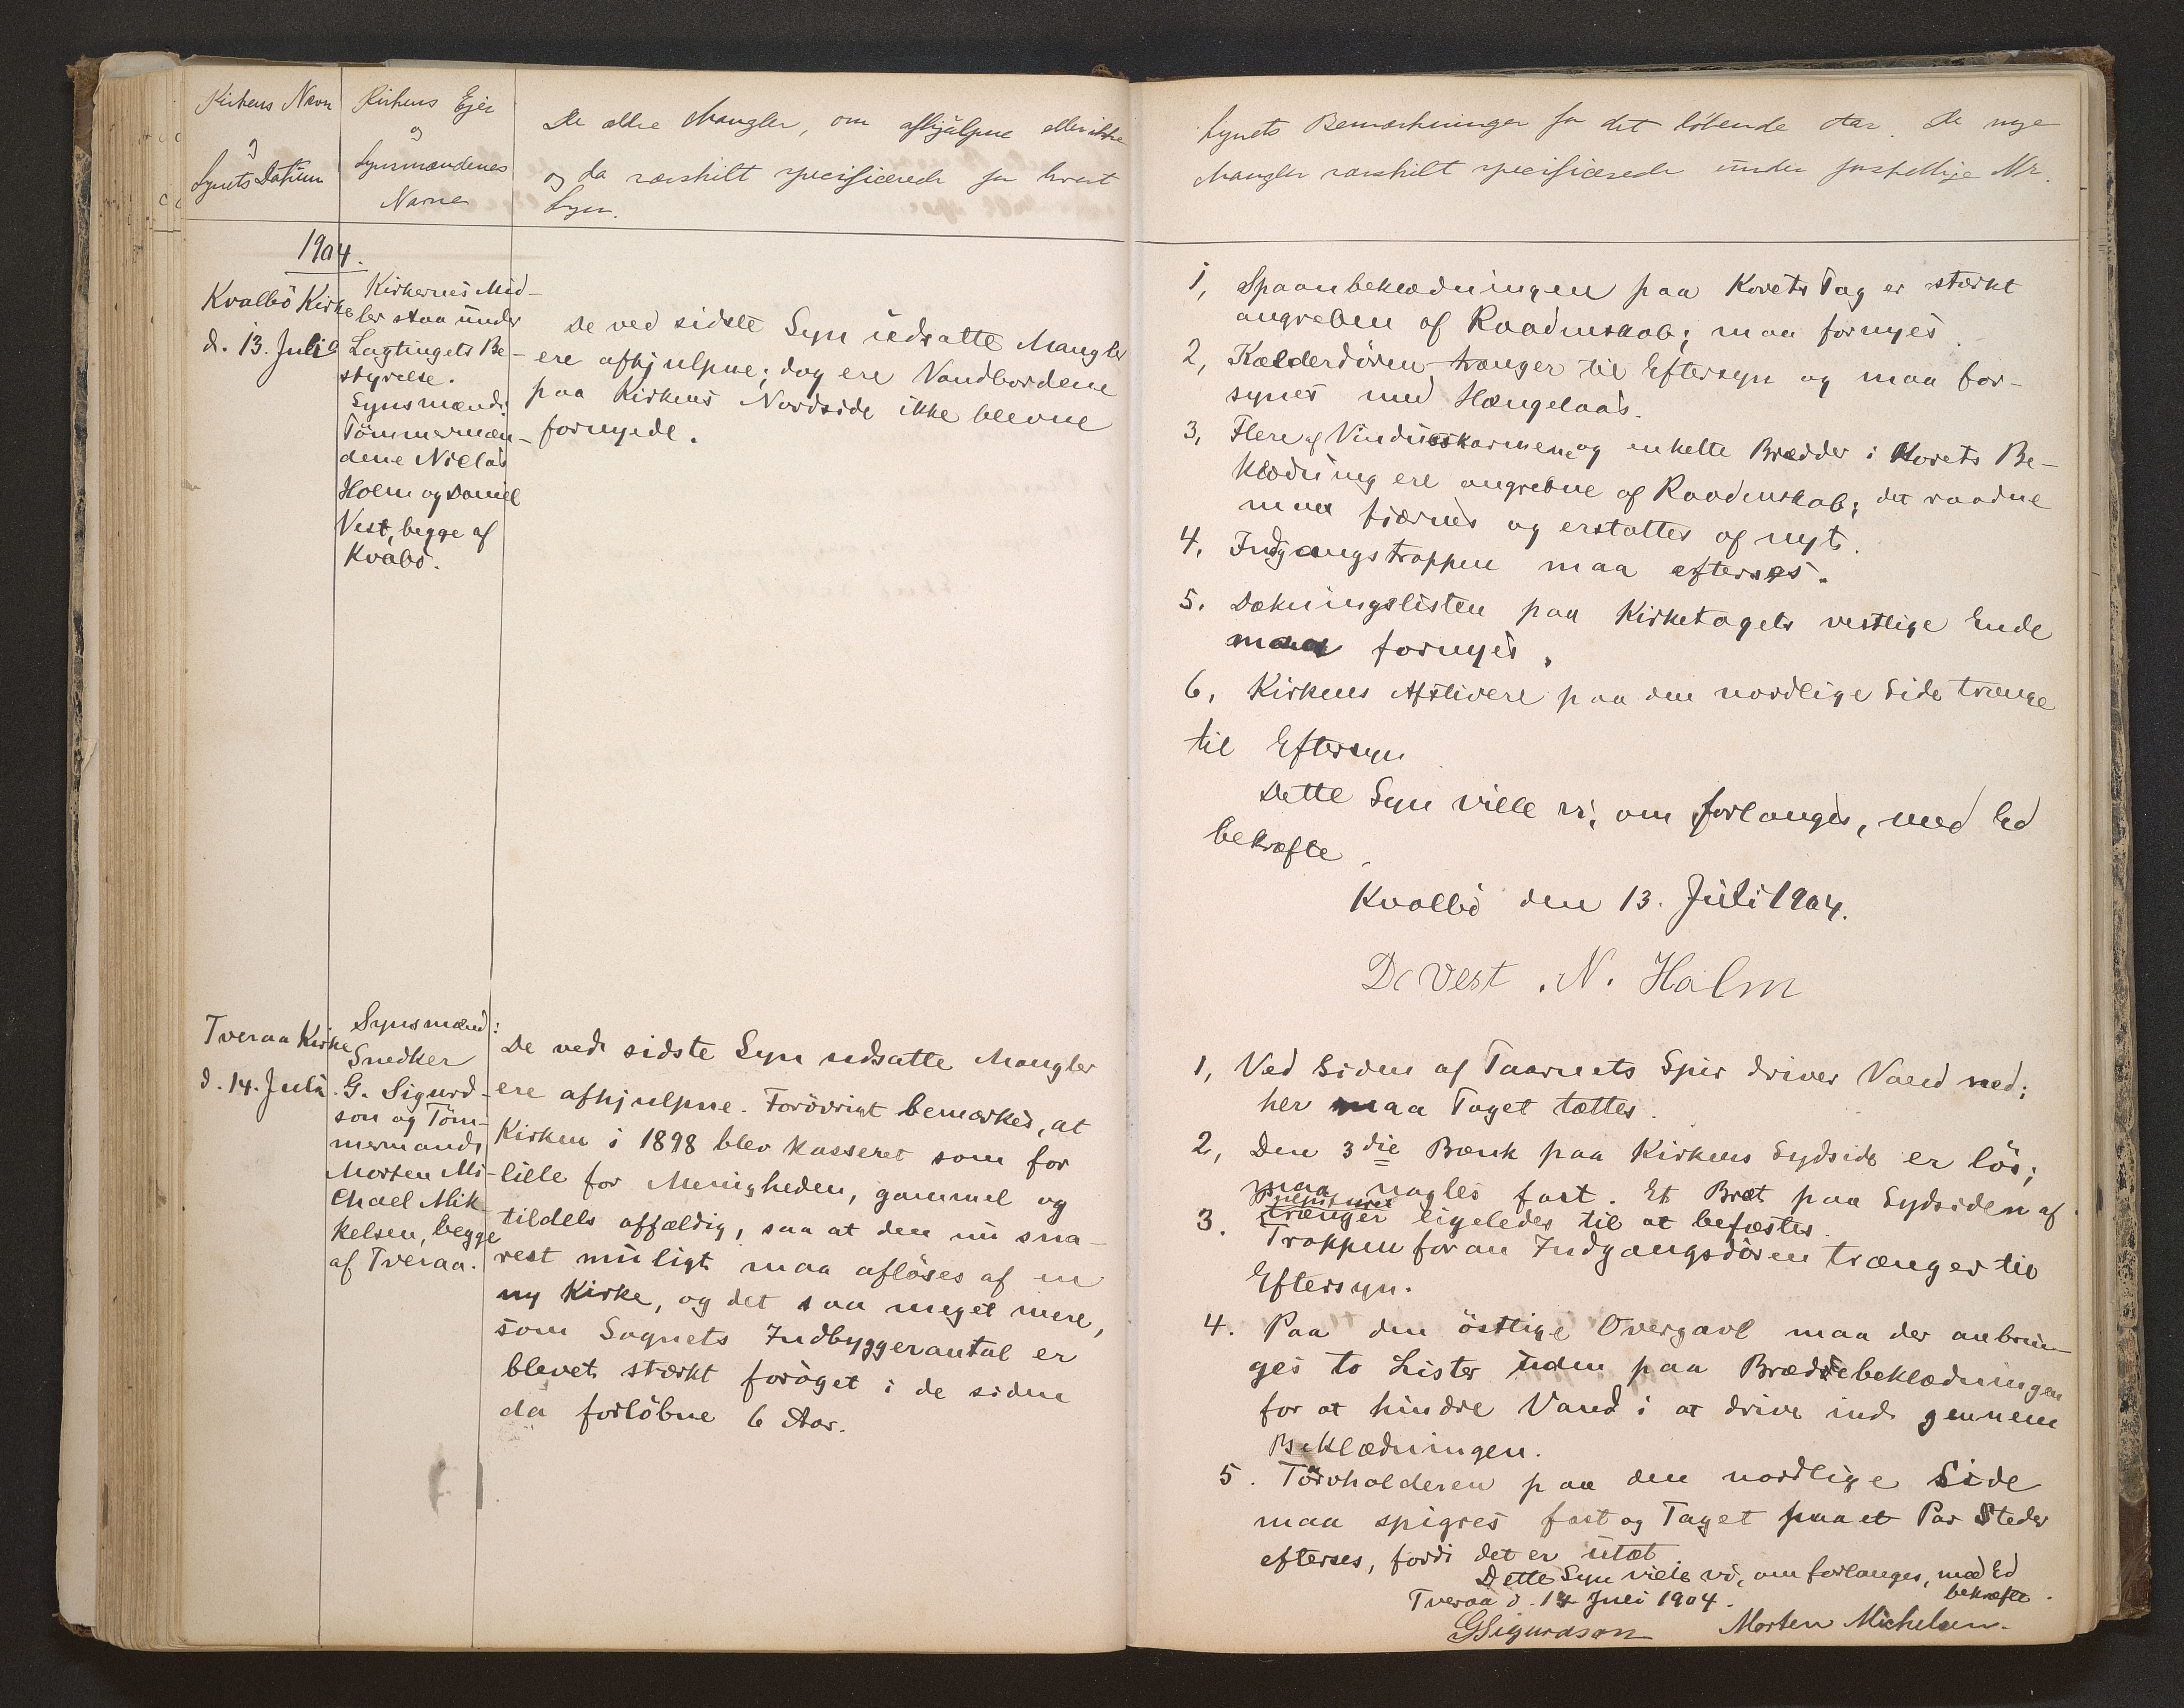 Kirkens Navn
og
Synets Datum
Kirkens Ejer
og
Synsmændenes
Navne
De ældre Mangler, om afhjulpne eller ikke
og da særskilt specificerede for hvert
Syn.
1904.
Kvalbö Kirke
d. 13. Juli
Kirkernes Mid-
ler staa under
Lagtingets Be-
styrelse.
Synsmænd:
Tömmermæn-
dene Niclas
Holm og Daniel
Vest, begge af
Kvabö.
De ved sidste Syn udsatte Mangler
ere afhjulpne; dog ere Vandbordene
paa Kirkens Nordside ikke blevne
fornyede.
Tveraa Kirke
d. 14. Juli
Synsmænd:
Snedker
G. Sigurd-
son og Töm-
mermand
Morten Mi-
chael Mik-
kelsen, begge
af Tveraa.
De ved sidste Syn udsatte Mangler
ere afhjulpne. Forövrigt bemærkes, at
Kirken i 1898 blev kasseret som for
lille for Menigheden, gammel og
tildels affældig, saa at den nu sna-
rest muligt maa aflöses af en
ny Kirke, og det saa meget mere,
som Sognets Indbyggerantal er
blevet stærkt foröget i de siden
da forlöbne 6 Aar.
Synets Bemærkninger for det löbende Aar. De nye
Mangler særskilt specificerede under forskellige Nr.
1, Spaanbeklædningen paa Korets Tag er stærkt
angreben af Raadenskab; maa fornyes.
2, Kælderdören trænger til Eftersyn og maa for-
synes med Hængelaas.
3, Flere af Vindueskarmene og enkelte Brædder i Korets Be-
klædning ere angrebne af Raadenskab; det raadne
maa fjærnes og erstattes af nyt.
4. Indgangstrappen maa efterses.
5. Dækningslisten paa Kirketagets vestlige Ende
maa fornyes.
6, Kirkens Afstivere paa den nordlige Side trænge
til Eftersyn
Dette Syn ville vi, om forlanges, med Ed
bekræfte.
Kvalbö den 13. Juli 1904.
D Vest . N. Holm
1, Ved Siden af Taarnets Spir driver Vand ned;
her maa Taget tættes.
2, Den 3die Bænk paa Kirkens Sydside er lös;
maa nagles fast. Et Bræt paa Sydsiden af
trænger ligeledes til at befæstes.
3. Trappen foran Indgangsdören trænger til
Eftersyn.
4. Paa den östlige Overgavl maa der anbrin-
ges to Lister uden paa Bræddebeklædningen
for at hindre Vand i at drive ind gennem
Beklædningen.
5. Törvholderen paa den nordlige Side
maa spigres fast og Taget paa et Par Steder
efterses, fordi det er utæt
Dette Syn ville vi, om forlanges, med Ed
bekræfte.
Tveraa d. 14 Juli 1904.
GSigurdson Morten Michelsen.